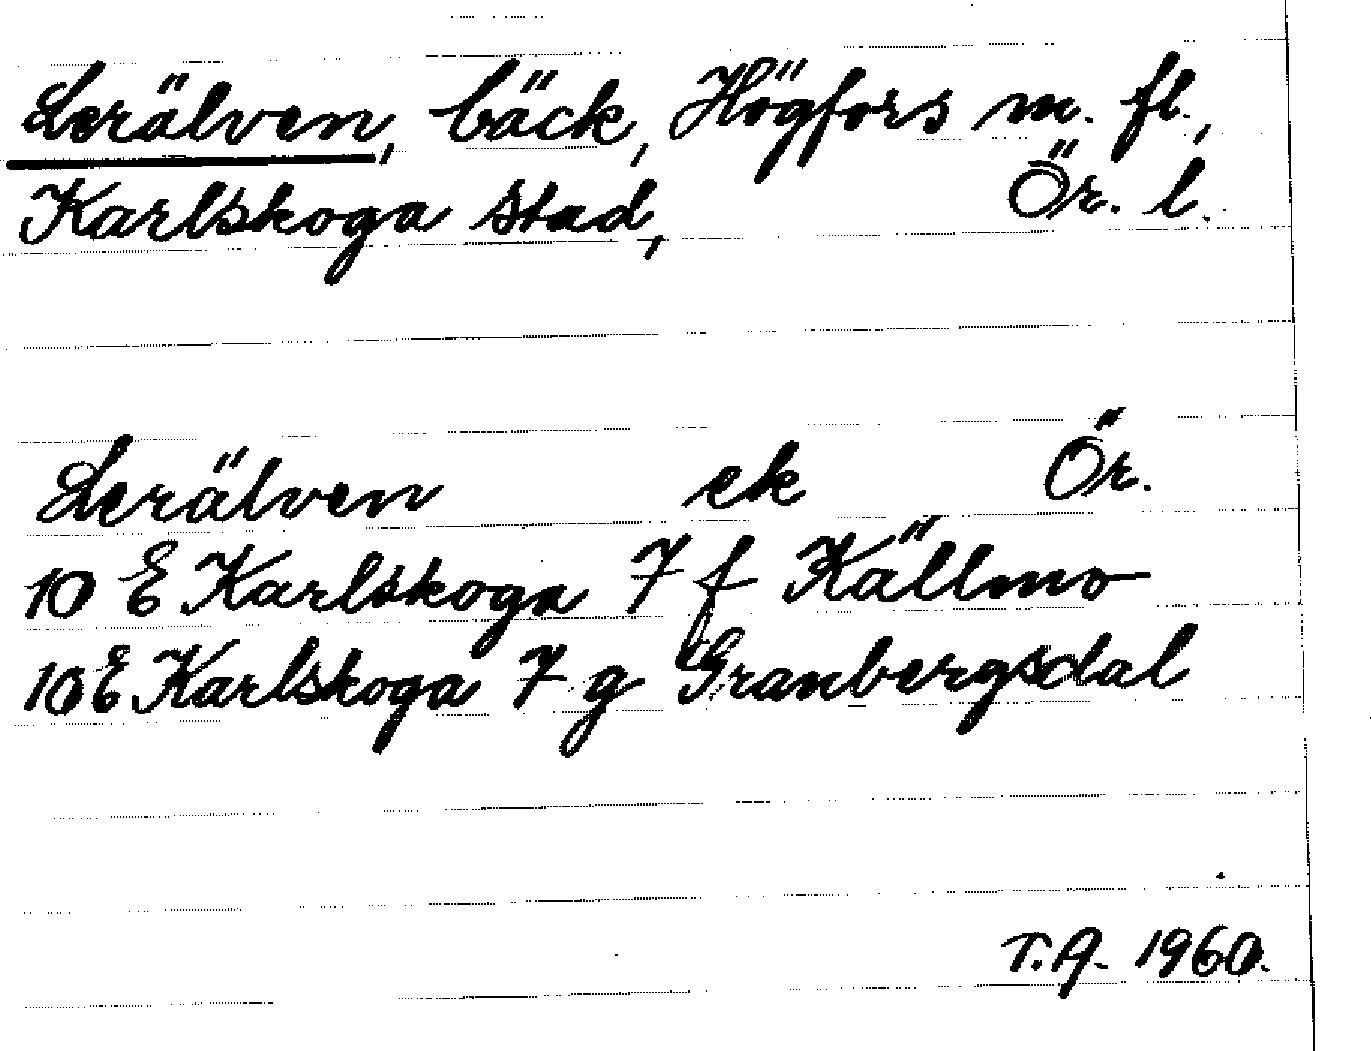 Lerälven, bäck, Högfors m. fl.,
Karlskoga stad, Ör. l.
Lerälven ek Ör.
10 E Karlskoga 7 f Källmo
10 E Karlskoga 7 g Granbergsdal
T.A. 1960.